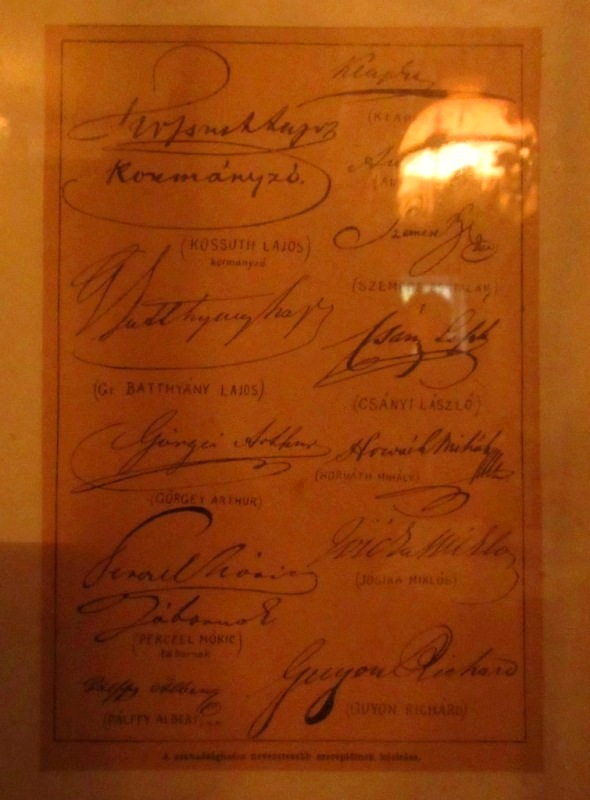 Kossuth Lajos
Kormányzó.
(KOSSUTH LAJOS)
kormányzó
Gr Batthyány Lajos
(Gr BATTHYÁNY LAJOS)
Görgei Arthur
(GÖRGEY ARTHUR)
Perczel Móric
Tábornok
(PERCZEL MÓRIC)
tábornok
Pálffy Albert
(PÁLFFY ALBERT)
Klapka
(KLAP
Szemere
(SZEMERE
Csány
(CSÁNYI LÁSZLÓ)
Horváth Mihály
(HORVÁTH MIHÁLY)
Jósika Miklós
(JÓSIKA MIKLÓS)
Guyon Richard
(GUYON RICHÁRD)
A szabadságharc nevezetesebb szereplőinek kézírása.